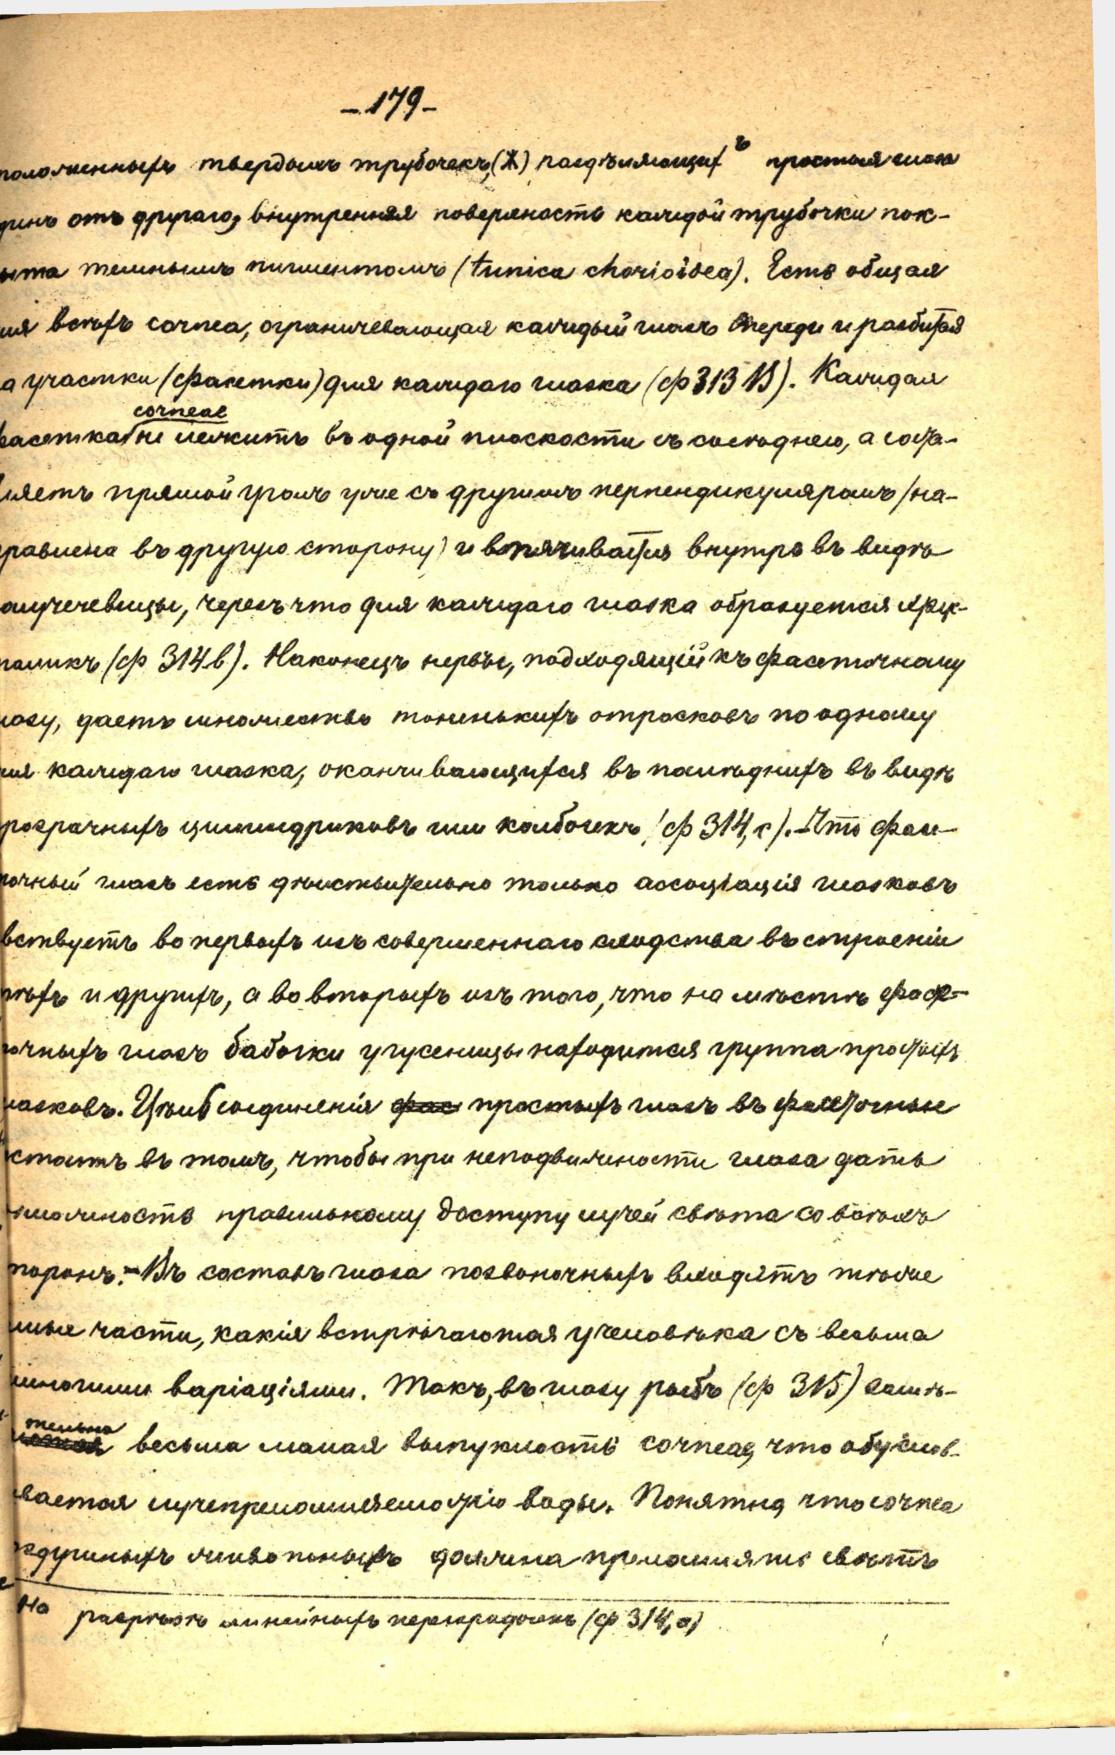 -179-
положенныхъ твердыхъ трубочекъ,(Ж) раздѣляющихъ простыя глаза
динъ отъ другаго, внутренняя поверхность каждой трубочки пок-
ыта темнымъ пигментомъ (tunica chorioidea). Есть общая
ля всѣхъ cornea, ограничевающая каждый глазъ спереди и разбитая
а участки (фасетки) для каждаго глазка (ф 313 В). Каждая
фасетка corneae не лежитъ въ одной плоскости съ сосѣднею, а соста-
вляетъ прямой уголъ уже съ другимъ перпендикуляромъ (на-
правлена въ другую сторону) и впячивается внутрь въ видѣ
олучечевицы, черезъ что для каждаго глазка образуется хру-
таликъ (ф 314 в). Наконецъ нервъ, подходящій къ фасеточному
лазу, даетъ множество тоненькихъ отростковъ по одному
ля каждаго глазка, оканчивающихся въ послѣднихъ въ видѣ
розрачныхъ цилиндриковъ или колбочекъ (ф 314, с).-Что фасе-
точный глазъ есть дѣйствительно только ассоціація глазковъ
вствуетъ во первыхъ изъ совершеннаго сходства въ строеніи
тѣхъ и другихъ, а во вторыхъ изъ того, что на мѣстѣ фасе-
точныхъ глазъ бабочки у гусеницы находится группа простыхъ
лазковъ. Цѣль соединенія простыхъ глазъ въ фасеточные
стоитъ въ томъ, чтобы при неподвижности глаза дать
зможность правильному доступу лучей свѣта со всѣхъ
торонъ.-Въ составъ глаза позвоночныхъ входятъ тѣже
мыя части, какія встрѣчаются у человѣка съ весьма
многими варіаціями. Такъ, въ глазу рыбъ (ф 315) замѣ-
тельна весьма малая выпуклость corneae, что обуслов-
ивается лучепреломляемостію воды. Понятно, что cornea
оздушныхъ животныхъ должна преломлять свѣтъ
На разрѣзѣ линейныхъ перегородокъ (ф 314, а)